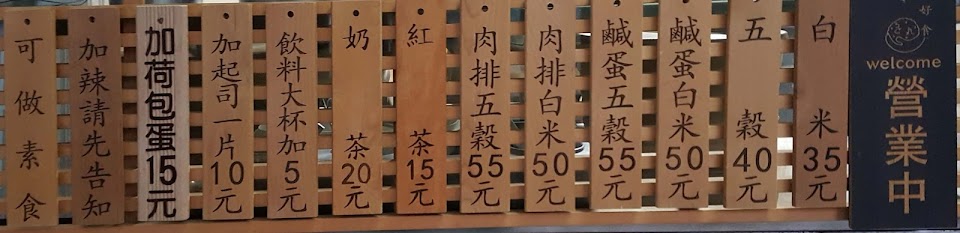 好食
welcome
營業中
白米35元
五穀40元
鹹蛋白米50元
鹹蛋五穀55元
肉排白米50元
肉排五穀55元
紅茶15元
奶茶20元
飲料大杯加5元
加起司一片10元
加荷包蛋15元
加辣請先告知
可做素食